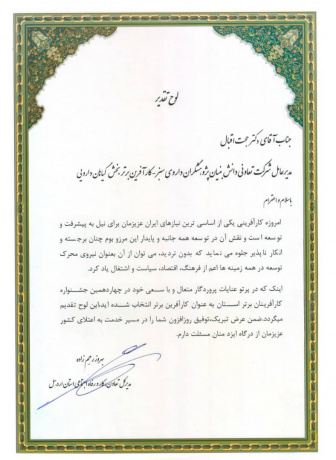 لوح تقدیر
جناب آقای دکتر حجت اقبال
مدیرعامل شرکت تعاونی دانش بنیان پژوهشگران داروی سبز - کارآفرین برتر بخش گیاهان دارویی
با سلام و احترام
امروزه کارآفرینی یکی از اساسی ترین نیازهای ایران عزیزمان برای نیل به پیشرفت و
توسعه است و نقش آن در توسعه همه جانبه و پایدار این مرزو بوم چنان برجسته و
انکار ناپذیر جلوه می نماید که بدون تردید، می توان از آن بعنوان نیروی محرک
توسعه در همه زمینه ها اعم از فرهنگ، اقتصاد، سیاست و اشتغال یاد کرد.
اینک که در پرتو عنایات پروردگار متعال و با سعی خود در چهاردهمین جشنواره
کارآفرینان برتر استان به عنوان کارآفرین برتر انتخاب شده اید،این لوح تقدیم
میگردد.ضمن عرض تبریک،توفیق روزافزون شما را در مسیر خدمت به اعتلای کشور
عزیزمان از درگاه ایزد منان مسئلت دارم.
بهروز رحیم زاده
مدیرکل تعاون، کار و رفاه اجتماعی استان اردبیل